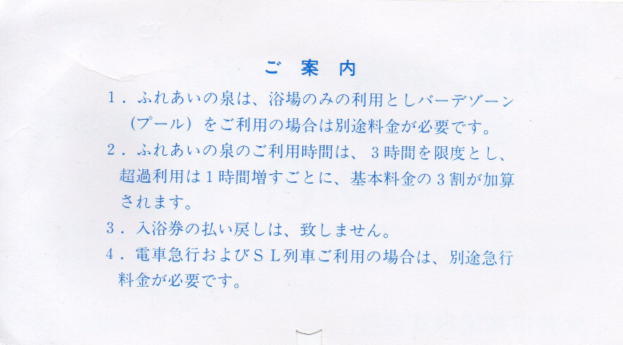 ご案内
1．ふれあいの泉は、浴場のみの利用としバーデゾーン
(プール) をご利用の場合は別途料金が必要です。
2．ふれあいの泉のご利用時間は、3時間を限度とし、
超過利用は1時間増すごとに、基本料金の3割が加算
されます。
3．入浴券の払い戻しは、致しません。
4．電車急行およびＳＬ列車ご利用の場合は、別途急行
料金が必要です。